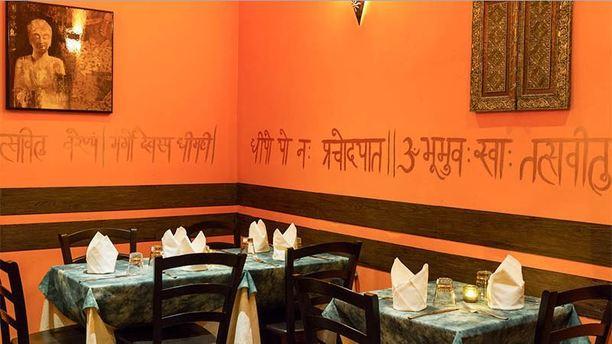 त्सवितु वरेण्यं। भर्गो देवस्य धीमही।
धीयो यो नः प्रचोदयात॥ ॐ भूर्भुवः स्वाः तत्सवीतु